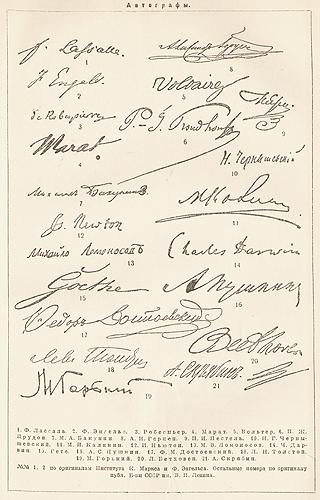 Автографы.
F. Lassalle.
1
8
F. Engels.
2
Voltaire
5
de Robespierre
3
P.-J. Proudhon
6
9
Marat
4
Н. Чернышевскій
10
Михаилъ Бакунинъ
7
М Калинин
11
Is. Newton
12
Михайло Ломоносовъ
13
Charles Darwin
14
Goethe
15
А Пушкинъ
16
Федоръ Достоевскій
17
Beethoven
20
Левъ Толстой
18
А. Скрябинъ.
21
М Горький
19
1. Ф. Лассаль. 2. Ф. Энгельс. 3. Робеспьер. 4. Марат. 5. Вольтер. 6. П. Ж.
Прудон. 7. М. А. Бакунин. 8. А. И. Герцен. 9. П. И. Пестель. 10. Н. Г. Черны-
шевский. 11. М. И. Калинин. 12. И. Ньютон. 13. М. В. Ломоносов. 14. Ч. Дар-
вин. 15. Гете. 16. А. С. Пушкин. 17. Ф. М. Достоевский. 18. Л. Н. Толстой.
19. М. Горький. 20. Л. Бетховен. 21. А. Скрябин.
№№ 1, 2 по оригиналам Института К. Маркса и Ф. Энгельса. Остальные номера по оригиналам
публ. б-ки СССР им. В. И. Ленина.